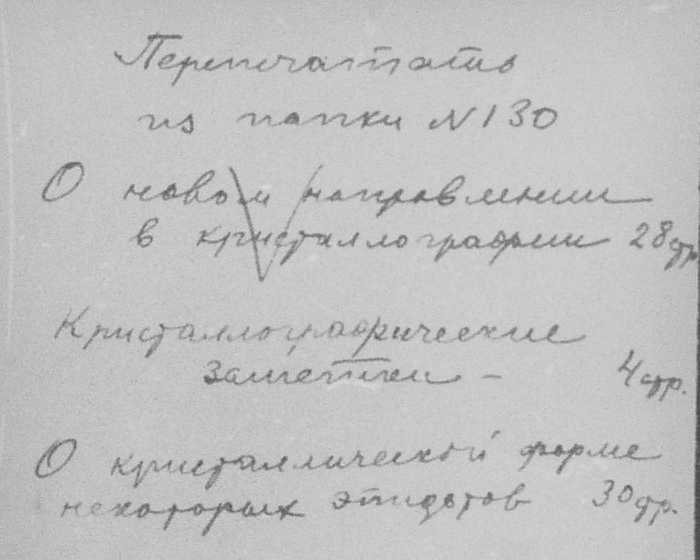 Перепечатать
из папки N 130
О новом направлении
в кристаллографии 28 стр.
Кристаллографические
заметки – 4 стр.
О кристаллической форме
некоторых эпидотов 30 стр.